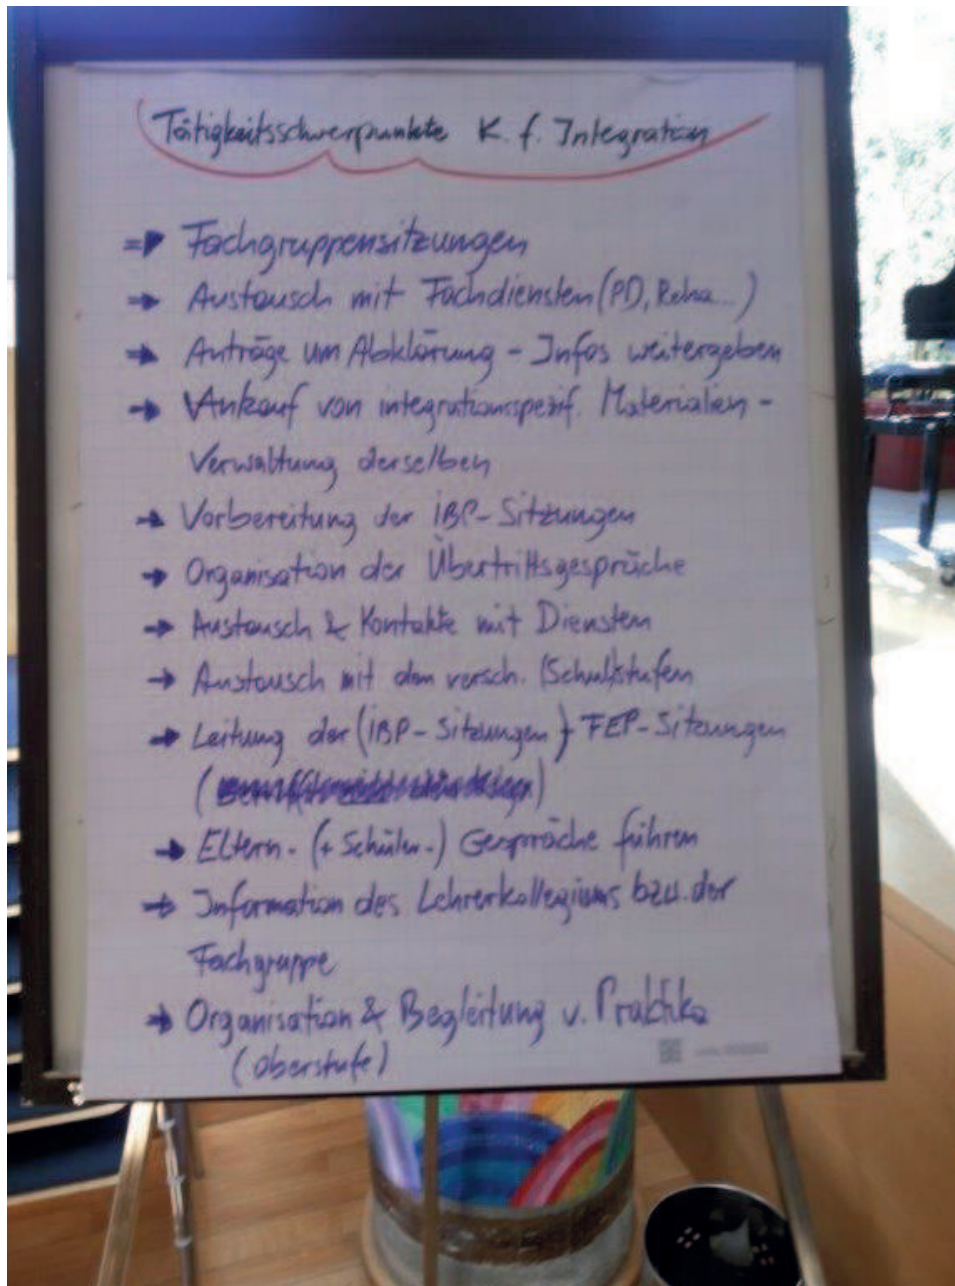 Tätigkeitsschwerpunkte K. f. Integration
⇒ Fachgruppensitzungen
→ Austausch mit Fachdiensten (PD, Reha...)
→ Anträge um Abklärung - Infos weitergeben
→ Ankauf von integrationsspezif. Materialien -
Verwaltung derselben
→ Vorbereitung der IBP-Sitzungen
→ Organisation der Übertrittsgespräche
→ Austausch & Kontakte mit Diensten
→ Austausch mit den versch. (Schul)stufen
→ Leitung der (IBP-Sitzungen) + FEP-Sitzungen
→ Eltern- (+ Schüler-) Gespräche führen
→ Information des Lehrerkollegiums bzw. der
Fachgruppe
→ Organisation & Begleitung v. Praktika
(Oberstufe)